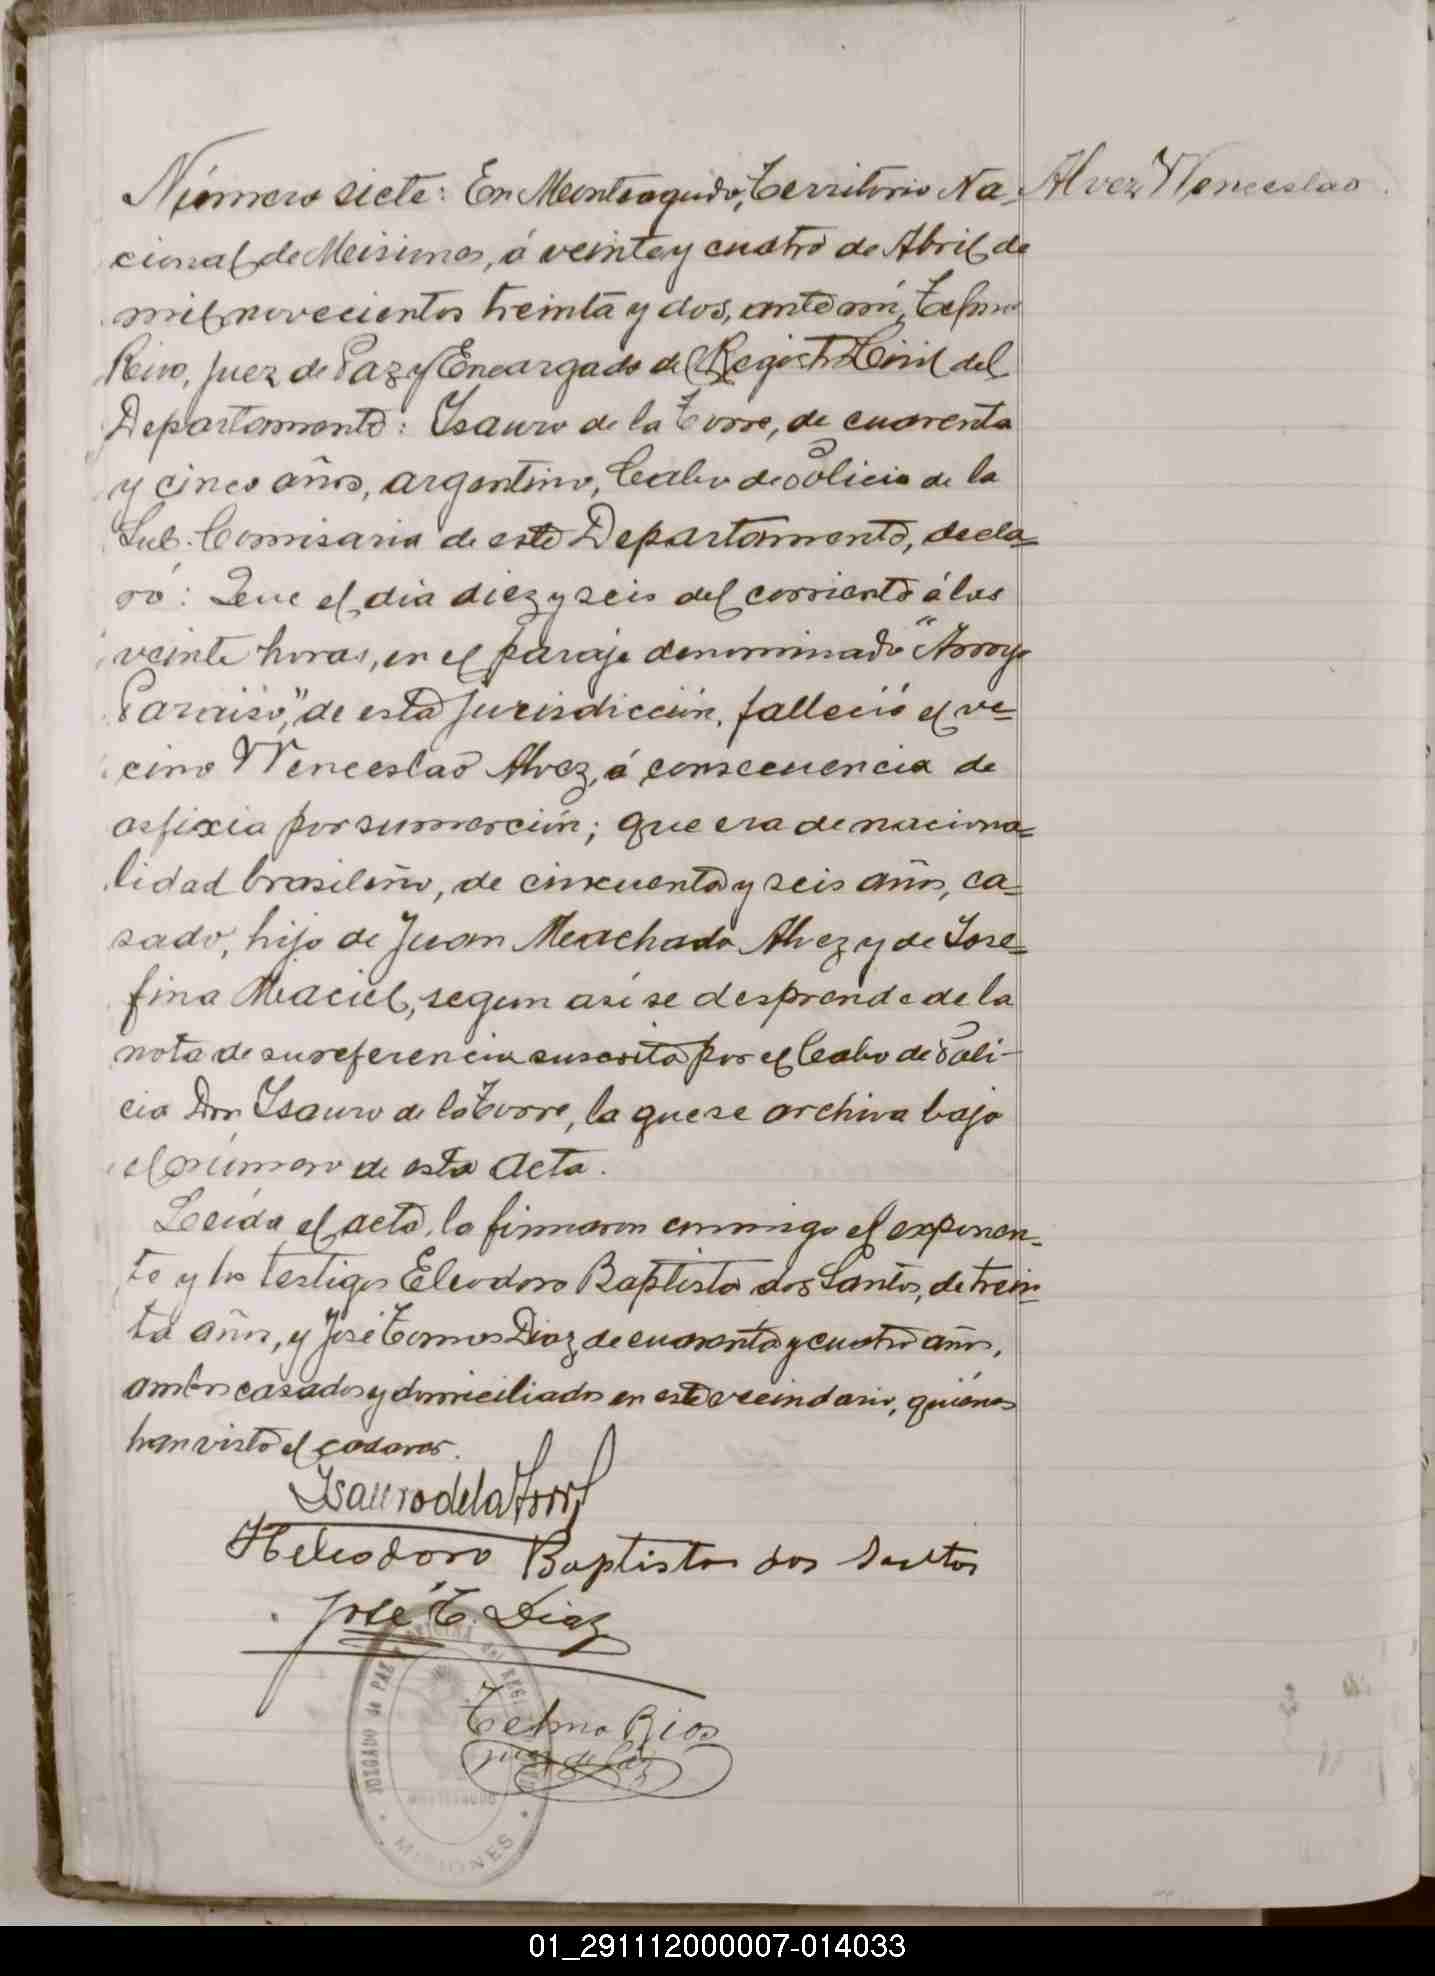 Número siete: En Monteagudo, Territorio Na-
Alvez Wenceslao.
cional de Misiones, á veinte y cuatro de Abril de
mil novecientos treinta y dos, ante mí, Telmo
Rios, Juez de Paz y Encargado del Registro Civil del
Departamento: Isauro de la Torre, de cuarenta
y cinco años, argentino, Cabo de Policia de la
Sub-Comisaria de este Departamento, decla=
ró: Que el dia diez y seis del corriente á las
veinte horas, en el paraje denominado "Arroyo
Paraiso," de esta jurisdicción, falleció el ve=
cino Wenceslao Alvez, á consecuencia de
asfixia por sumerción; que era de naciona=
lidad brasileño, de cincuenta y seis años, ca=
sado, hijo de Juan Machado Alvez y de Jose=
fina Maciel, segun asi se desprende de la
nota de su referencia suscrita por el Cabo de Poli-
cia Don Isauro de la Torre, la que se archiva bajo
el número de esta Acta.
Leída el acta, la firmaron conmigo el exponen-
te y los testigos Eleodoro Baptista dos Santos, de trein-
ta años, y José Tomas Diaz, de cuarenta y cuatro años,
ambos casados y domiciliados en este vecindario, quiénes
han visto el cadaver.
Isauro de la Torre
Heleodoro Baptista dos Santos
José T. Diaz
Telmo Rios
juez de Paz
JUZGADO de PAZ y OFICINA del REG.
MONTEAGUDO
MISIONES
01_291112000007-014033